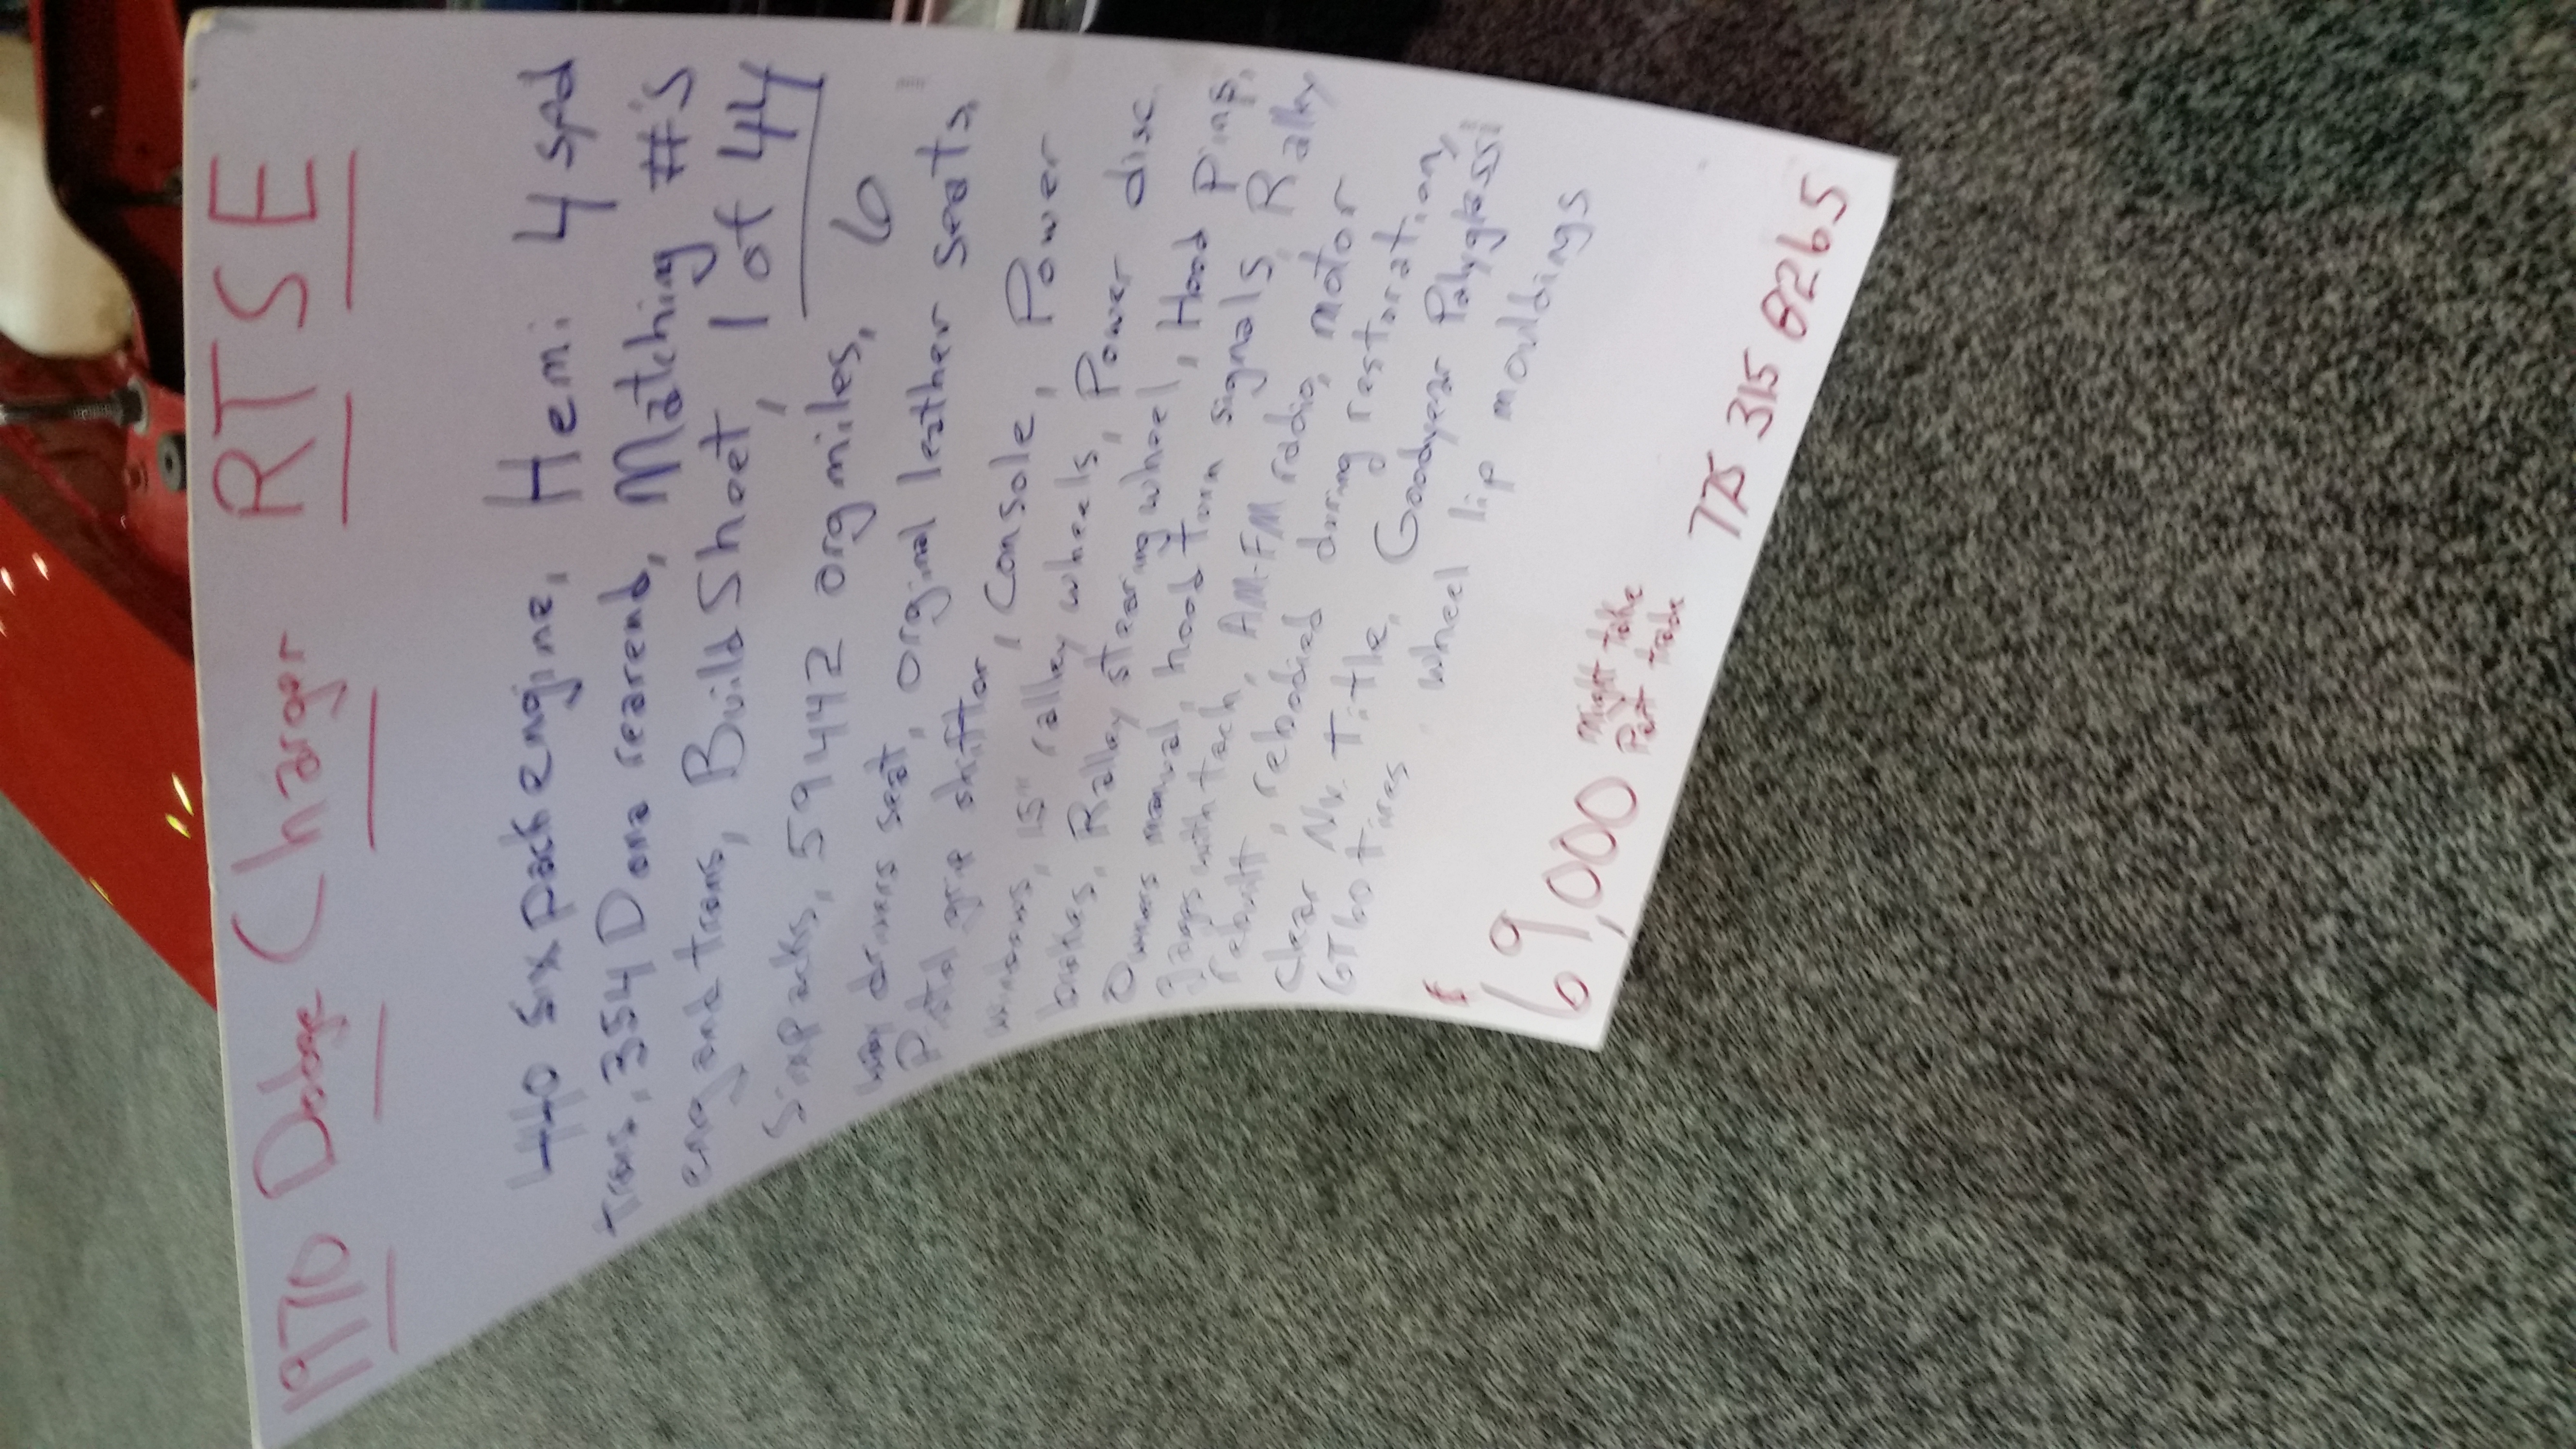 1970 Dodge Charger RTSE
440 six pack engine, Hemi 4 spd
trans, 354 Dana rearend, Matching #'s
eng and trans, Build Sheet, 1 of 44
Sixpacks, 59442 org miles, 6
way drivers seat, orginal leather seats,
Pistol grip shifter, Console, Power
windows, 15" ralley wheels, Power disc
brakes, Ralley stearing wheel, Hood Pins,
Owners manual, hood turn signals, Ralley
gages with tach, AM-FM radio, motor
rebuilt, rebodied during restoration,
Clear Nv. title, Goodyear Polyglass
GT 60 tires, wheel lip mouldings
$69,000 Might take
Part trade
775 315 8265